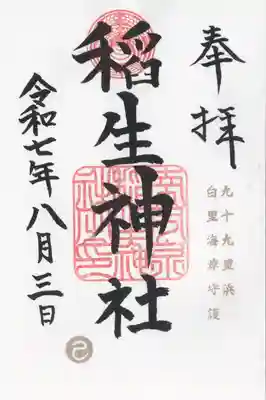 奉拝
九十九里浜
白里海岸守護
稲生神社
令和七年八月三日